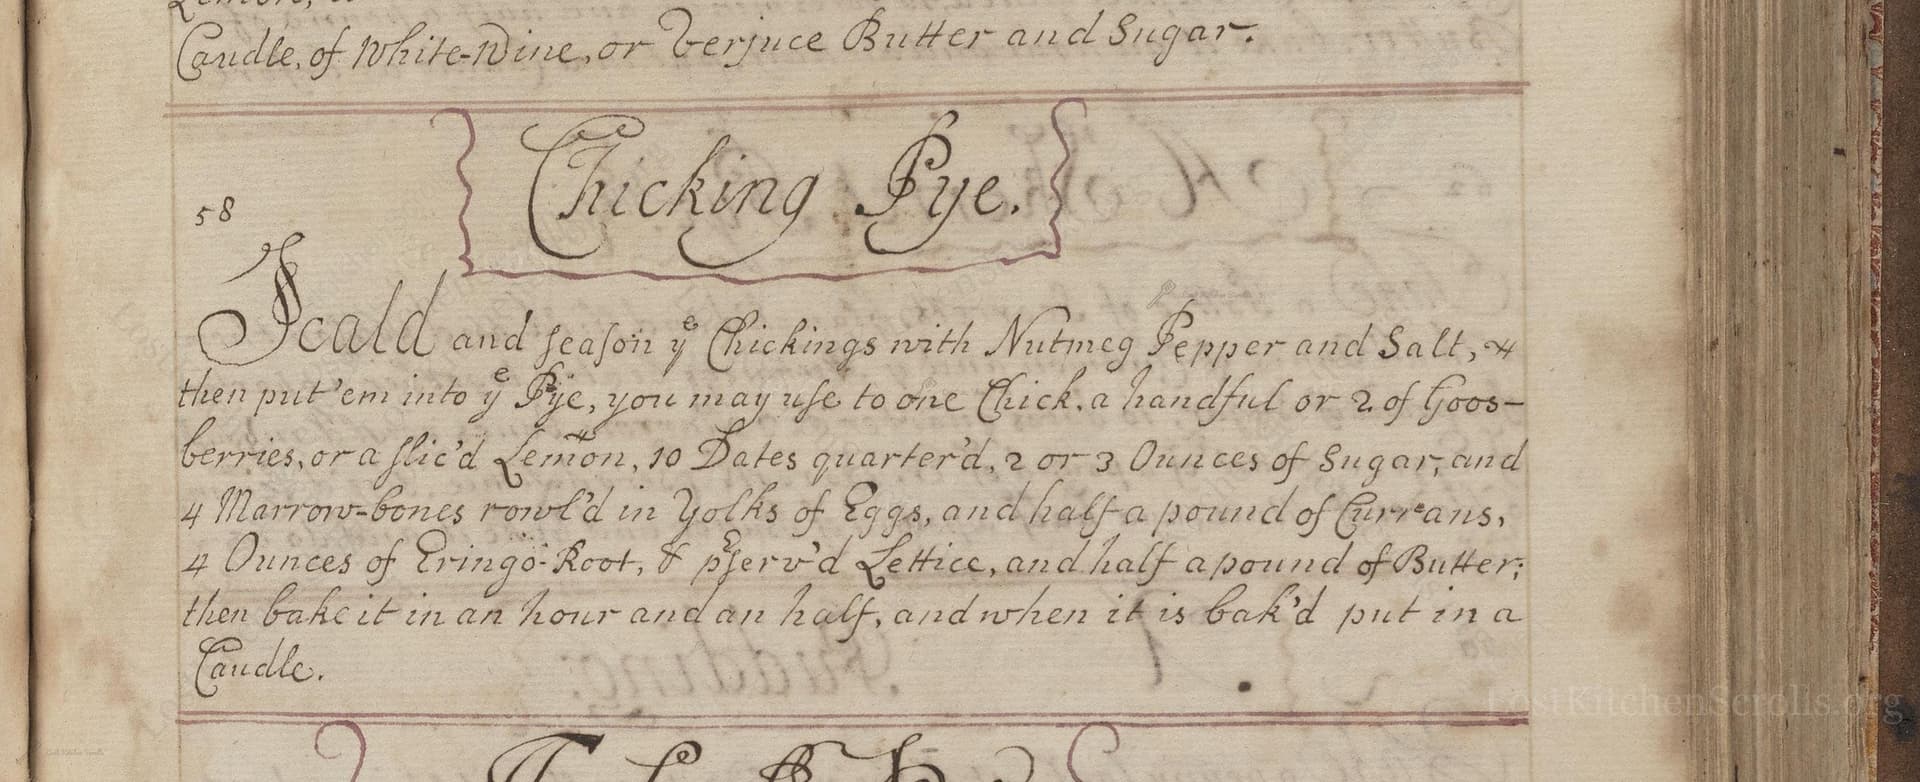 Candle, of White-Wine, or Verjuce Butter and Sugar.
Chicking Pye.
58
Scald and season yᵉ Chickings with Nutmeg Pepper and Salt, &
then put 'em into yᵉ Pye, you may use to one Chick. a handful or 2 of Goos-
berries, or a slic'd Lemon, 10 Dates quarter'd, 2 or 3 Ounces of Sugar, and
4 Marrow-bones rowl'd in Yolks of Eggs, and half a pound of Currans,
4 Ounces of Eringo-Root, & pʳserv'd Lettice, and half a pound of Butter;
then bake it in an hour and an half, and when it is bak'd put in a
Caudle.
LostKitchenScrolls.org